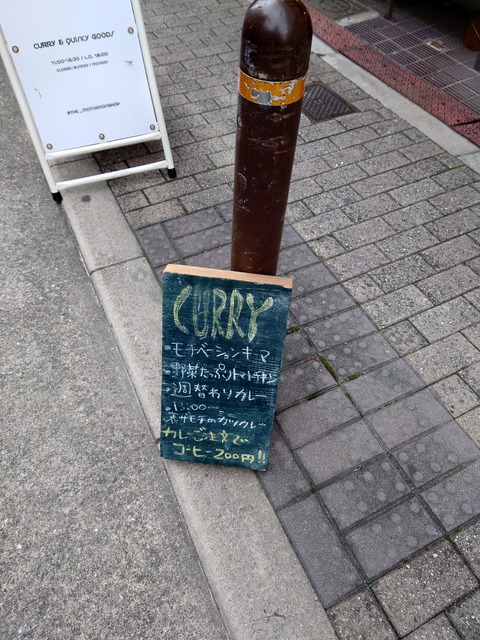 CURRY & QUIRKY GOODS
11:00-16:30 / L.O. 16:00
CLOSED: SUNDAY / MONDAY
#THE_MOTIVATIONSHOP
CURRY
・モチベーションキーマ
・野菜たっぷりトマトチキン
・週替わりカレー
・13:00〜
ホサモチのカツカレー
カレーご注文で
コーヒー200円!!